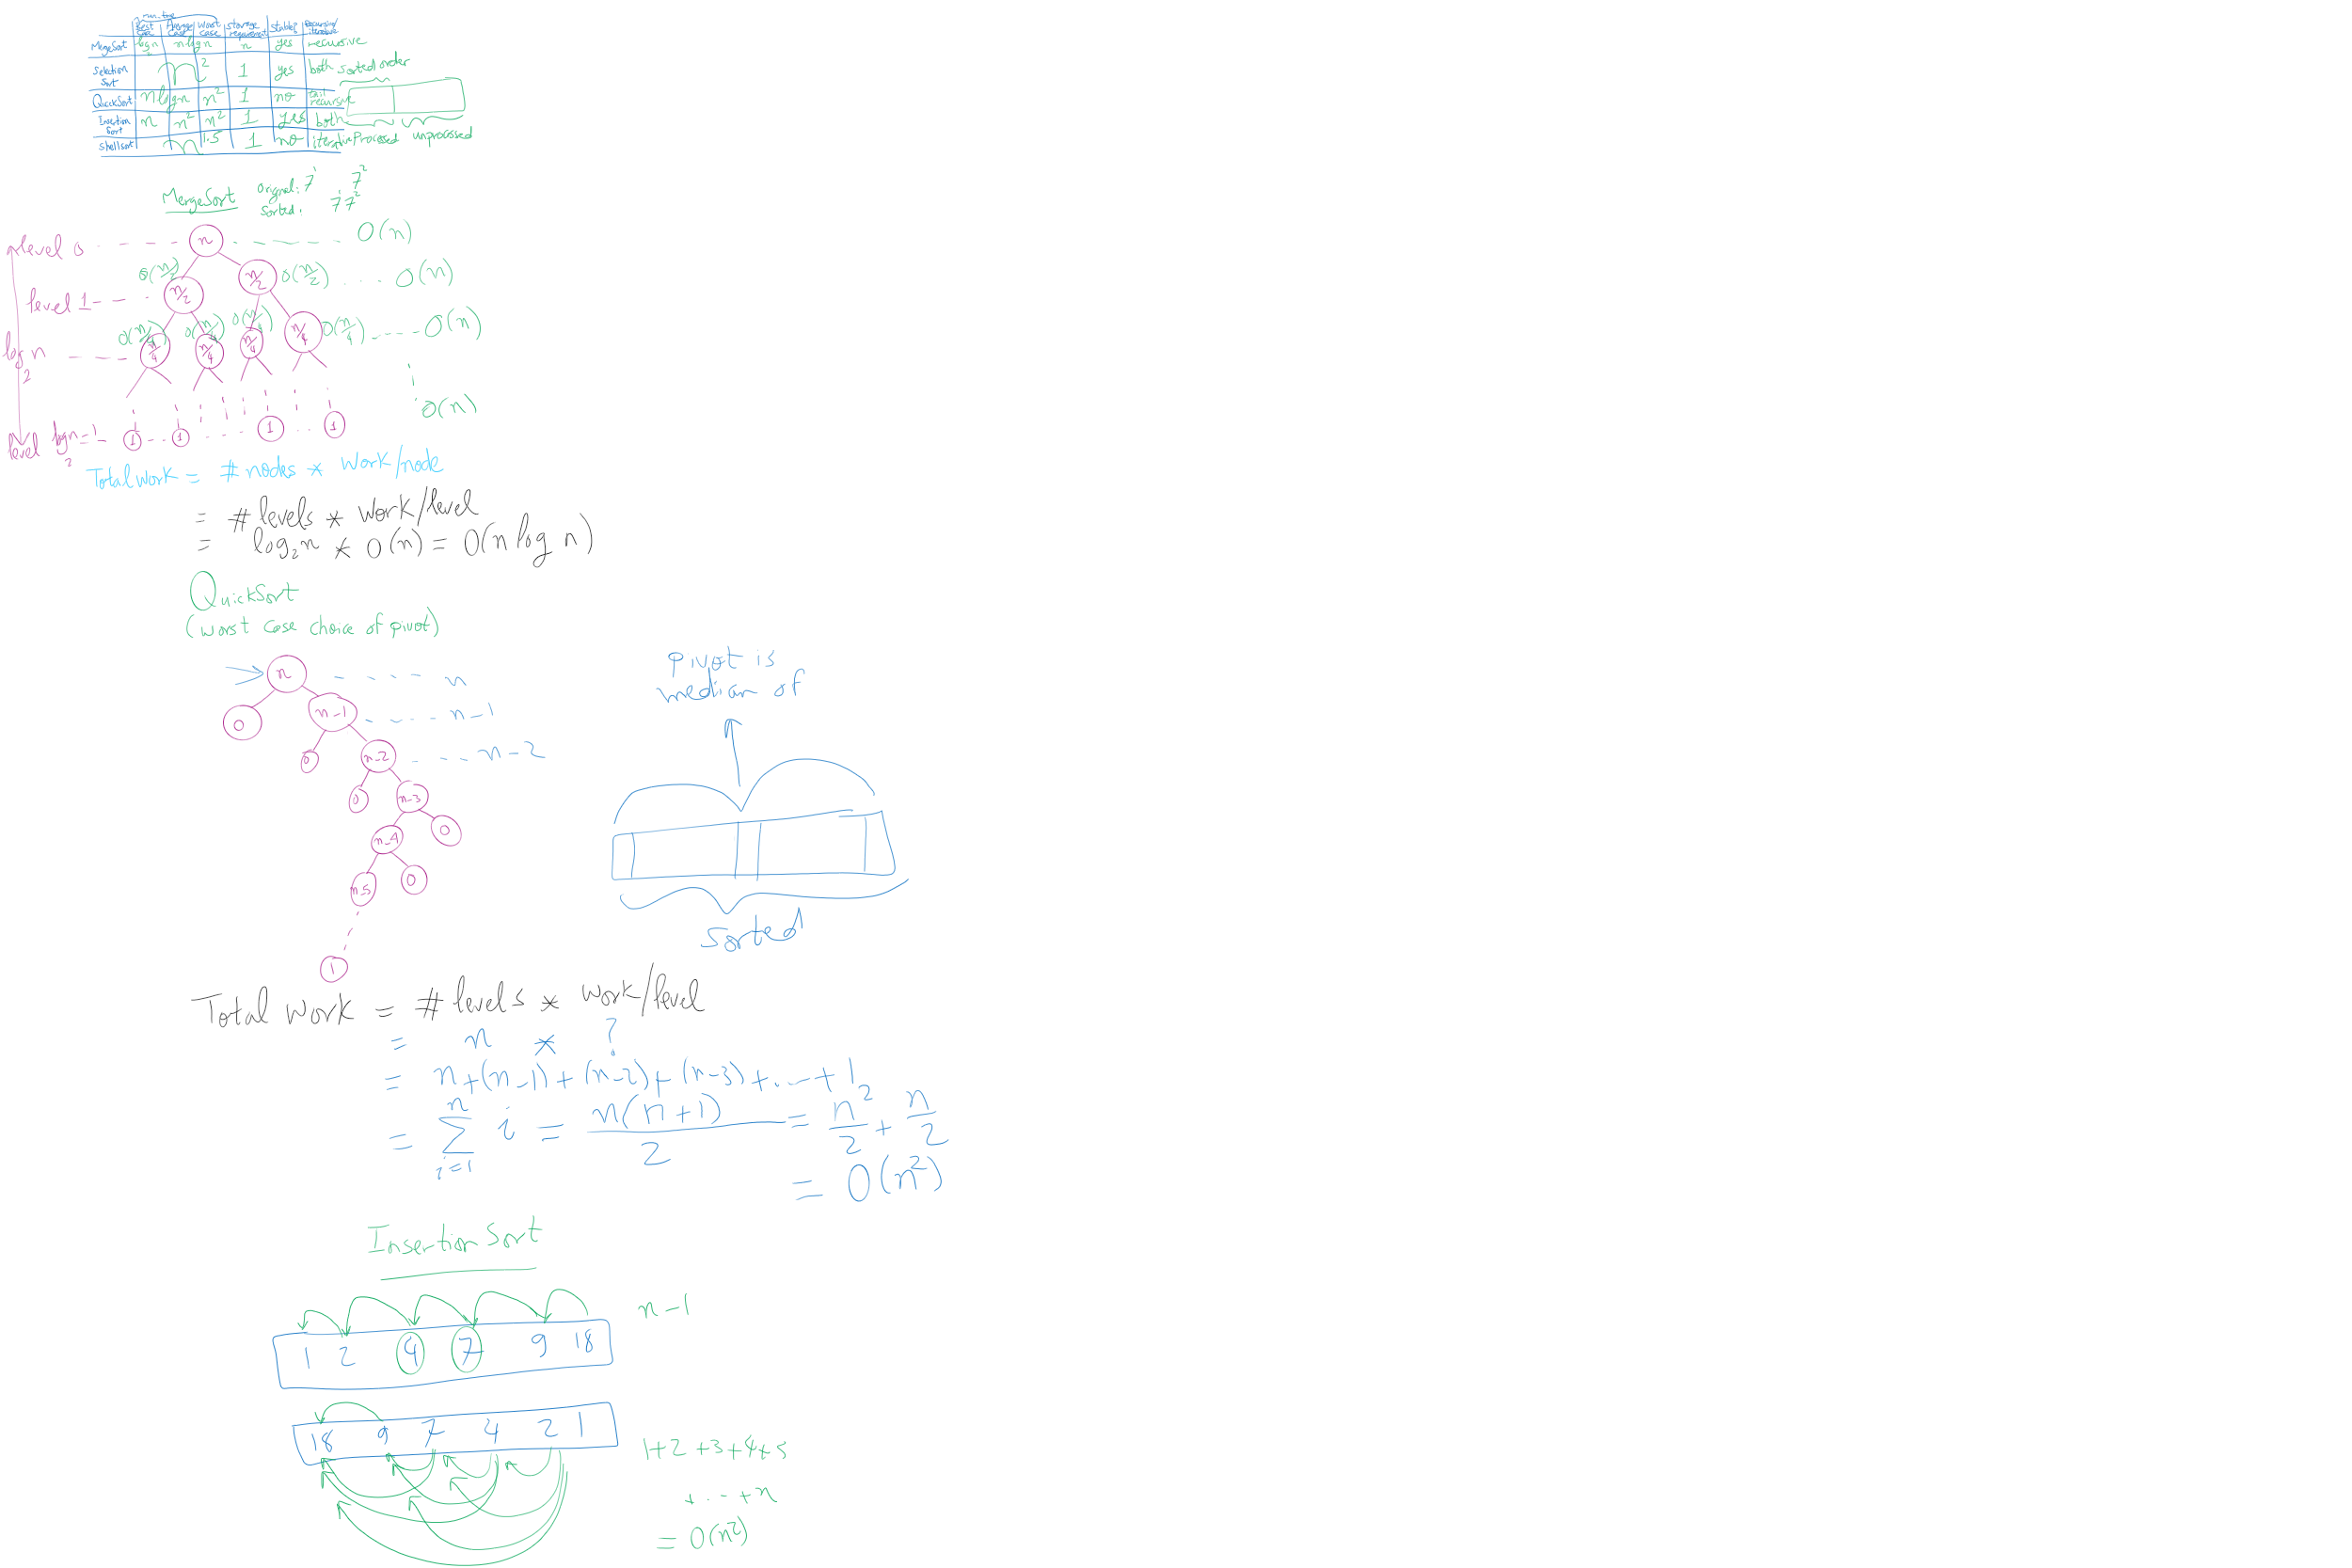 run-time
Best case Average case Worst case storage requirement Stable? Recursive/iterative
MergeSort log₂n n log n n yes recursive
Selection Sort n² 1 yes both sorted order
QuickSort n log n n² 1 no tail recursive
Insertion Sort n n² n² 1 yes both
Shellsort n^1.5 1 no iterative Processed unprocessed
MergeSort Original: 7¹ 7²
Sorted: 7¹ 7²
level 0 n O(n)
O(n/2) n/2 O(n/2) O(n)
level 1 n/2
O(n/4) O(n/4) O(n/4) n/4 O(n/4) O(n)
log₂ n n/4 n/4 n/4
O(n)
level log₂n-1 1 1 1 1
Total work = #nodes * work/node
= #levels * work/level
= log₂n * O(n) = O(n log n)
QuickSort
(worst case choice of pivot)
n n
0 n-1 n-1
0 n-2 n-2
0 n-3
n-4 0
n-5 0
1
pivot is
median of
sorted
Total work = #levels * work/level
= n * ?
= n+(n-1)+(n-2)+(n-3)+...+1
= ∑ i=1 n i = n(n+1)/2 = n²/2 + n/2
= O(n²)
Insertion Sort
n-1
1 2 4 7 9 18
18 9 7 4 2 1
1+2+3+4+5
+...+n
= O(n²)